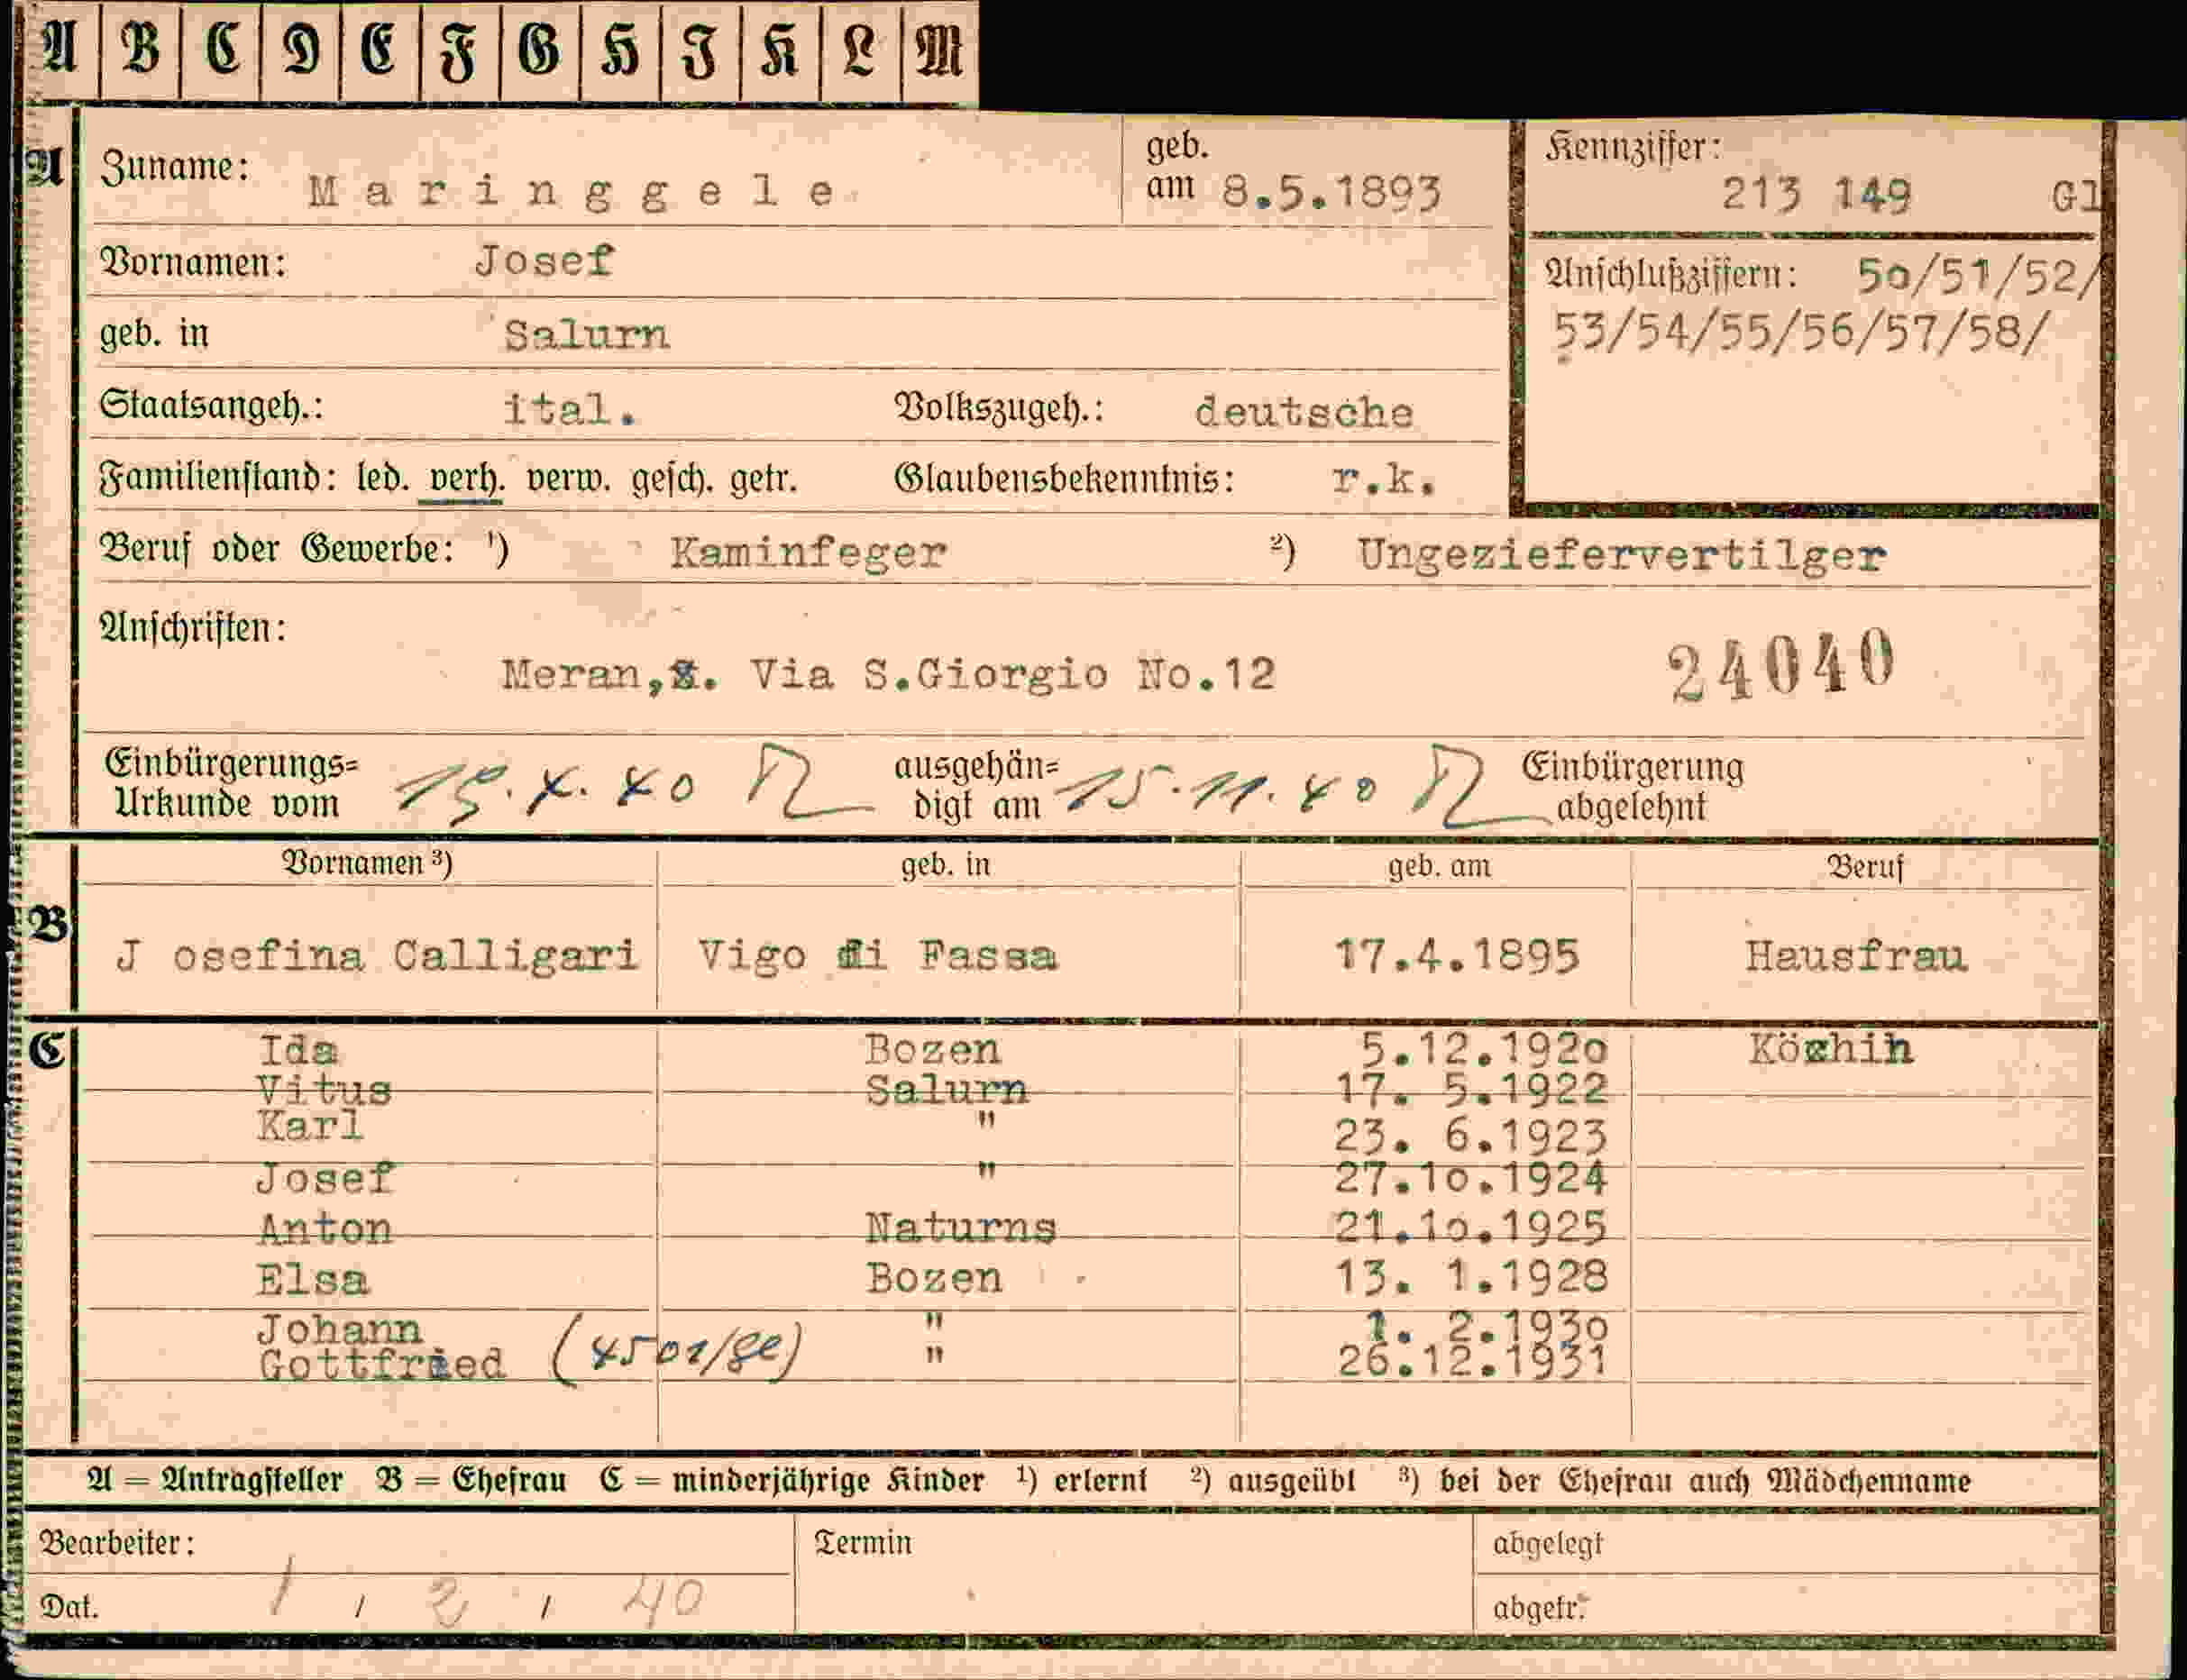 A B C D E F G H I K L M
A
Zuname: Maringgele geb. am 8.5.1893
Kennziffer: 213 149 Gl
Vornamen: Josef
Anschlußziffern: 50/51/52/
53/54/55/56/57/58/
geb. in Salurn
Staatsangeh.: ital. Volkszugeh.: deutsche
Familienstand: led. verh. verw. gesch. getr. Glaubensbekenntnis: r.k.
Beruf oder Gewerbe: ¹) Kaminfeger ²) Ungeziefervertilger
Anschriften:
Meran, . Via S.Giorgio No.12 24040
Einbürgerungs= Urkunde vom 19.X.40 ausgehän= digt am 15.11.40 Einbürgerung abgelehnt
Vornamen ³) geb. in geb. am Beruf
B
J osefina Calligari Vigo di Fassa 17.4.1895 Hausfrau
C
Ida Bozen 5.12.1920 Köchin
Vitus Salurn 17. 5.1922
Karl " 23. 6.1923
Josef " 27.10.1924
Anton Naturns 21.10.1925
Elsa Bozen 13. 1.1928
Johann " 1. 2.1930
Gottfried " 26.12.1931
A = Antragsteller B = Ehefrau C = minderjährige Kinder ¹) erlernt ²) ausgeübt ³) bei der Ehefrau auch Mädchenname
Bearbeiter: Termin abgelegt
Dat. 1 / 2 / 40 abgefr.